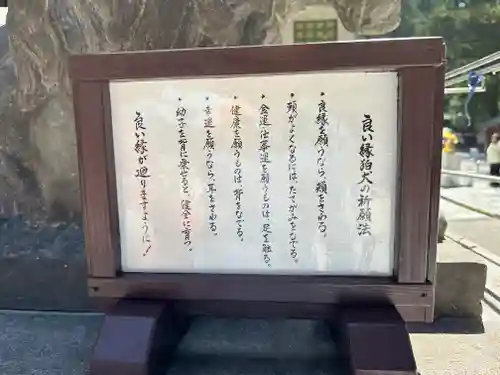 良い縁狛犬の祈願法
* 良縁を願うなら、頬をさわる。
* 頭がよくなるには、たてがみをなでる。
* 金運、仕事運を願うものは、足を触る。
* 健康を願うものは、背をなでる。
* 幸運を願うなら、耳をさわる。
* 幼子を背に乗せると、健全に育つ。
良い縁が廻りますように!